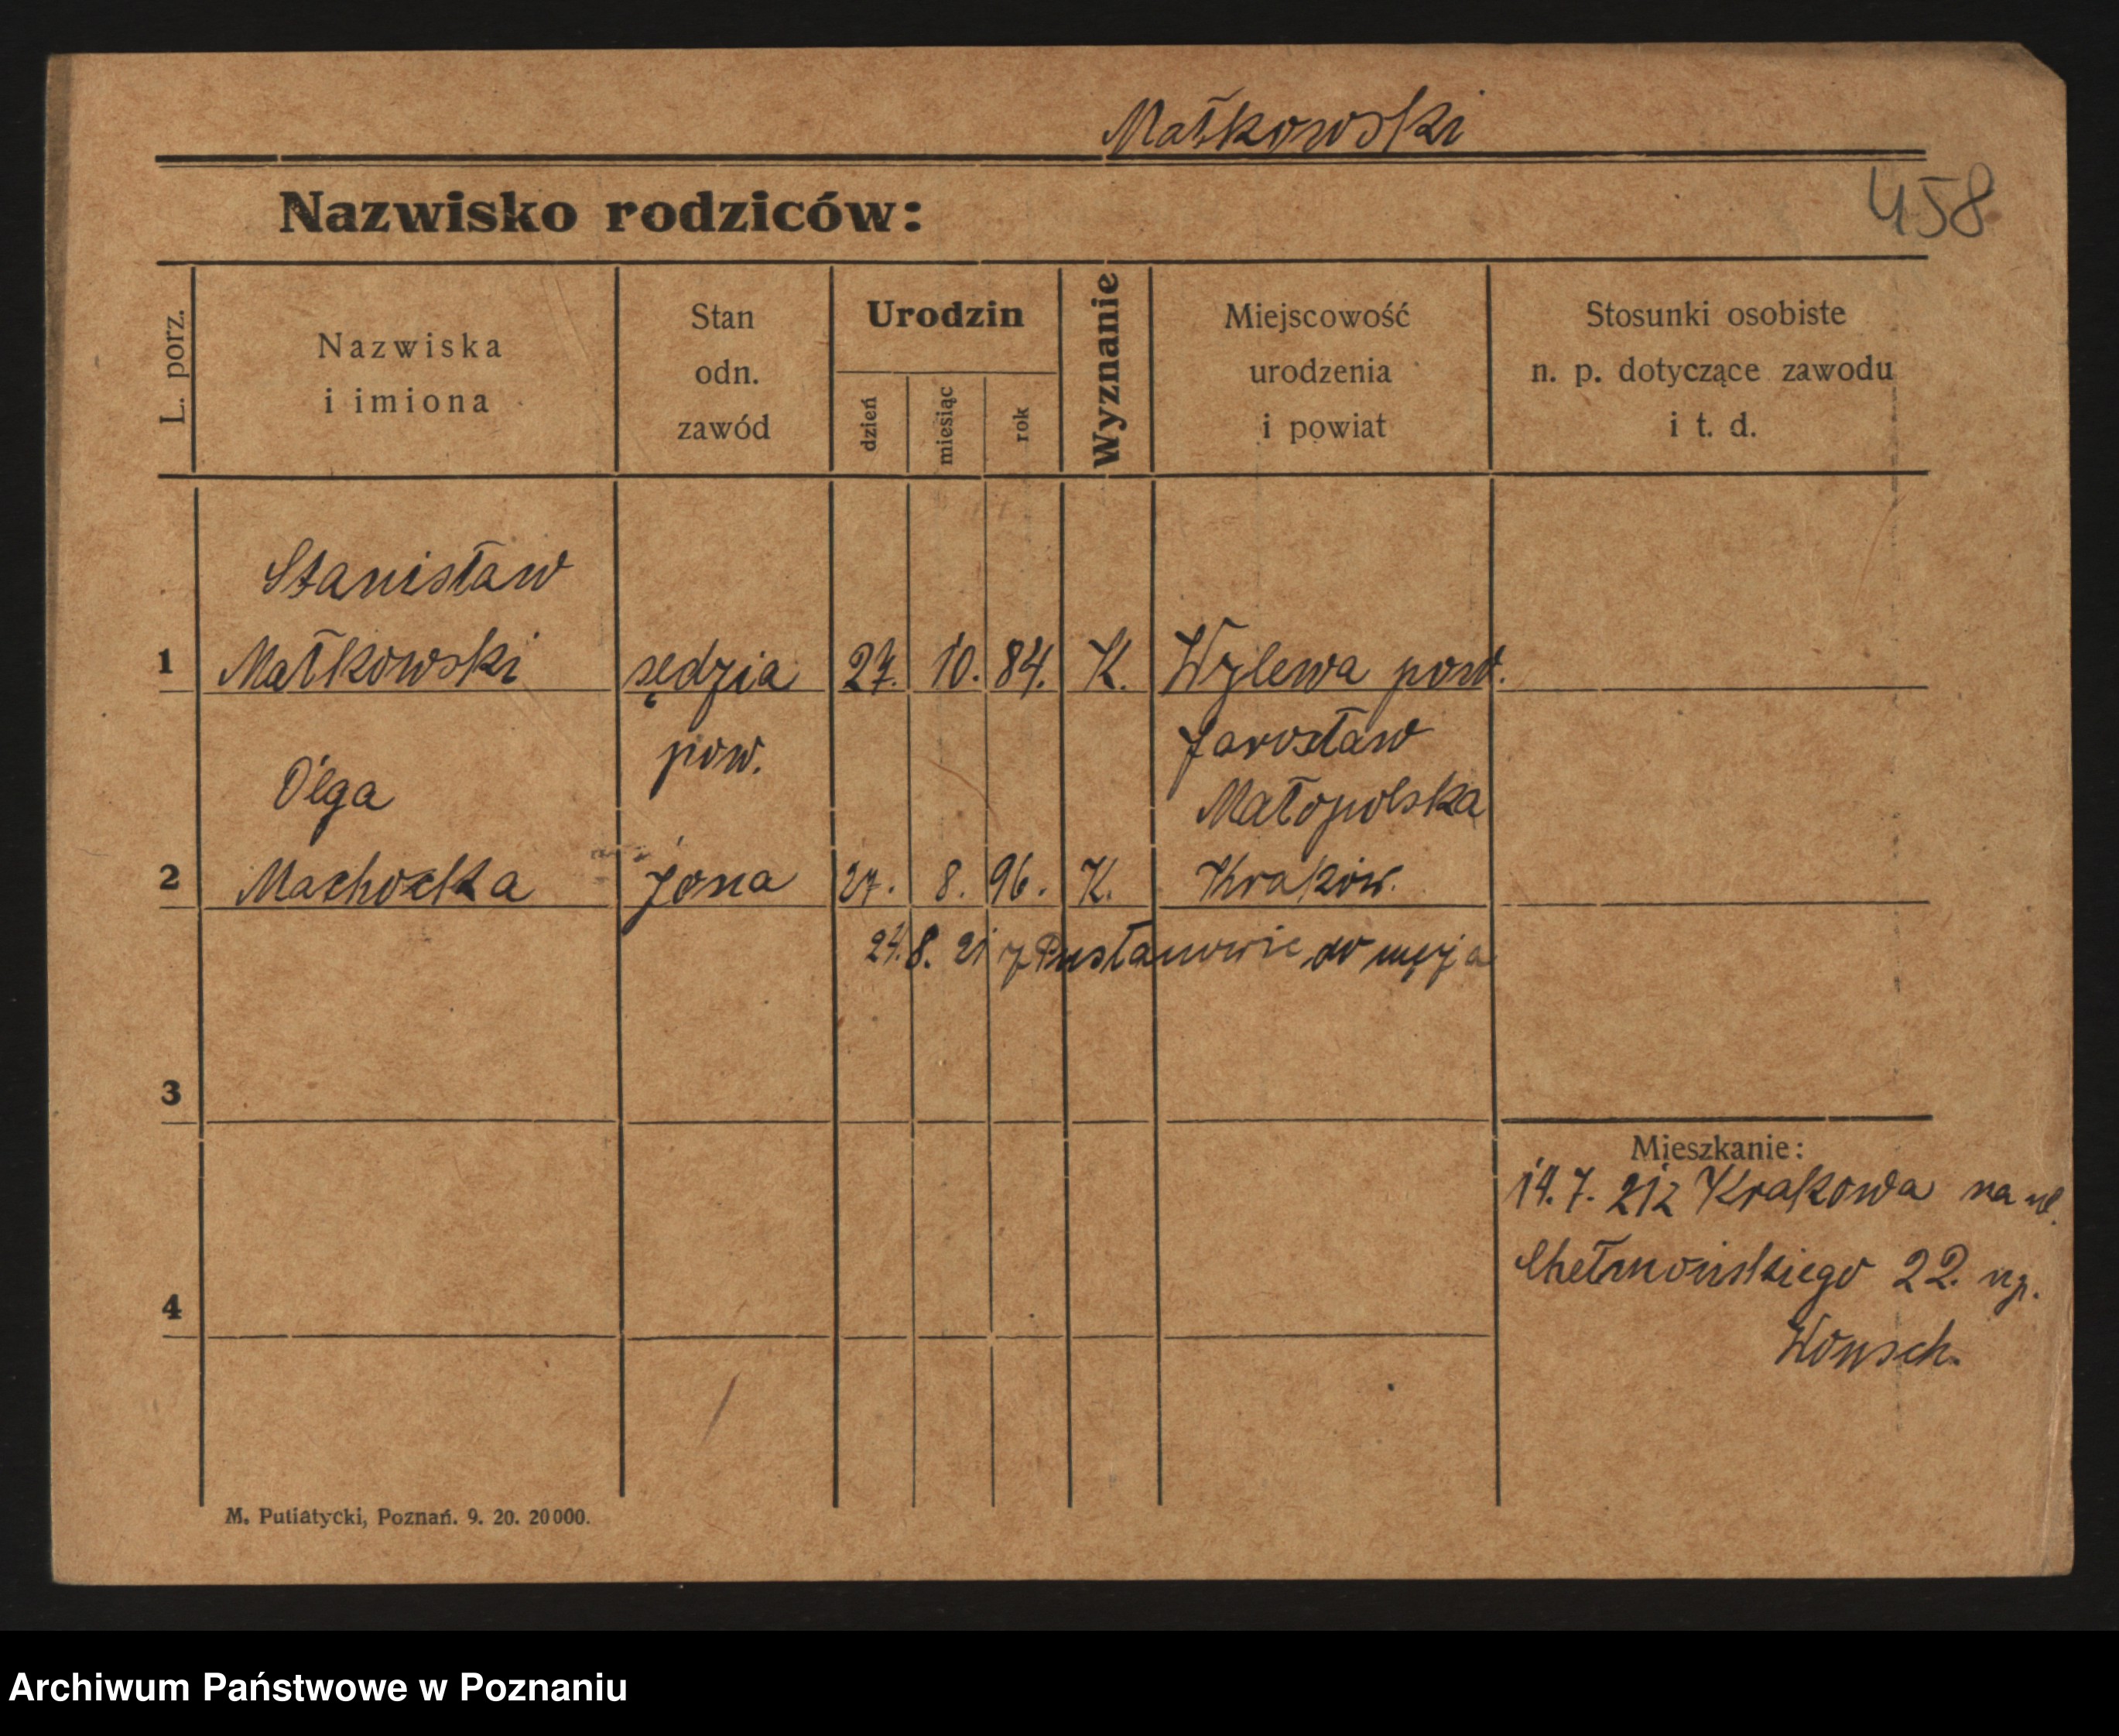 Małkowski
458
Nazwisko rodziców:
L. porz.
Nazwiska
i imiona
Stan
odn.
zawód
Urodzin
dzień
miesiąc
rok
Wyznanie
Miejscowość
urodzenia
i powiat
Stosunki osobiste
n. p. dotyczące zawodu
i t. d.
Stanisław
1 Małkowski sędzia 27. 10. 84. K. Wylewa pow.
pow. Jarosław
Olga Małopolska
2 Machocka żona 27. 8. 96. K. Kraków.
24. 8. 21 do męża
3
Mieszkanie:
14. 7. 21 z Krakowa na ul.
Chełmońskiego 22.
Wonsch.
4
M. Putiatycki, Poznań. 9. 20. 20000.
Archiwum Państwowe w Poznaniu